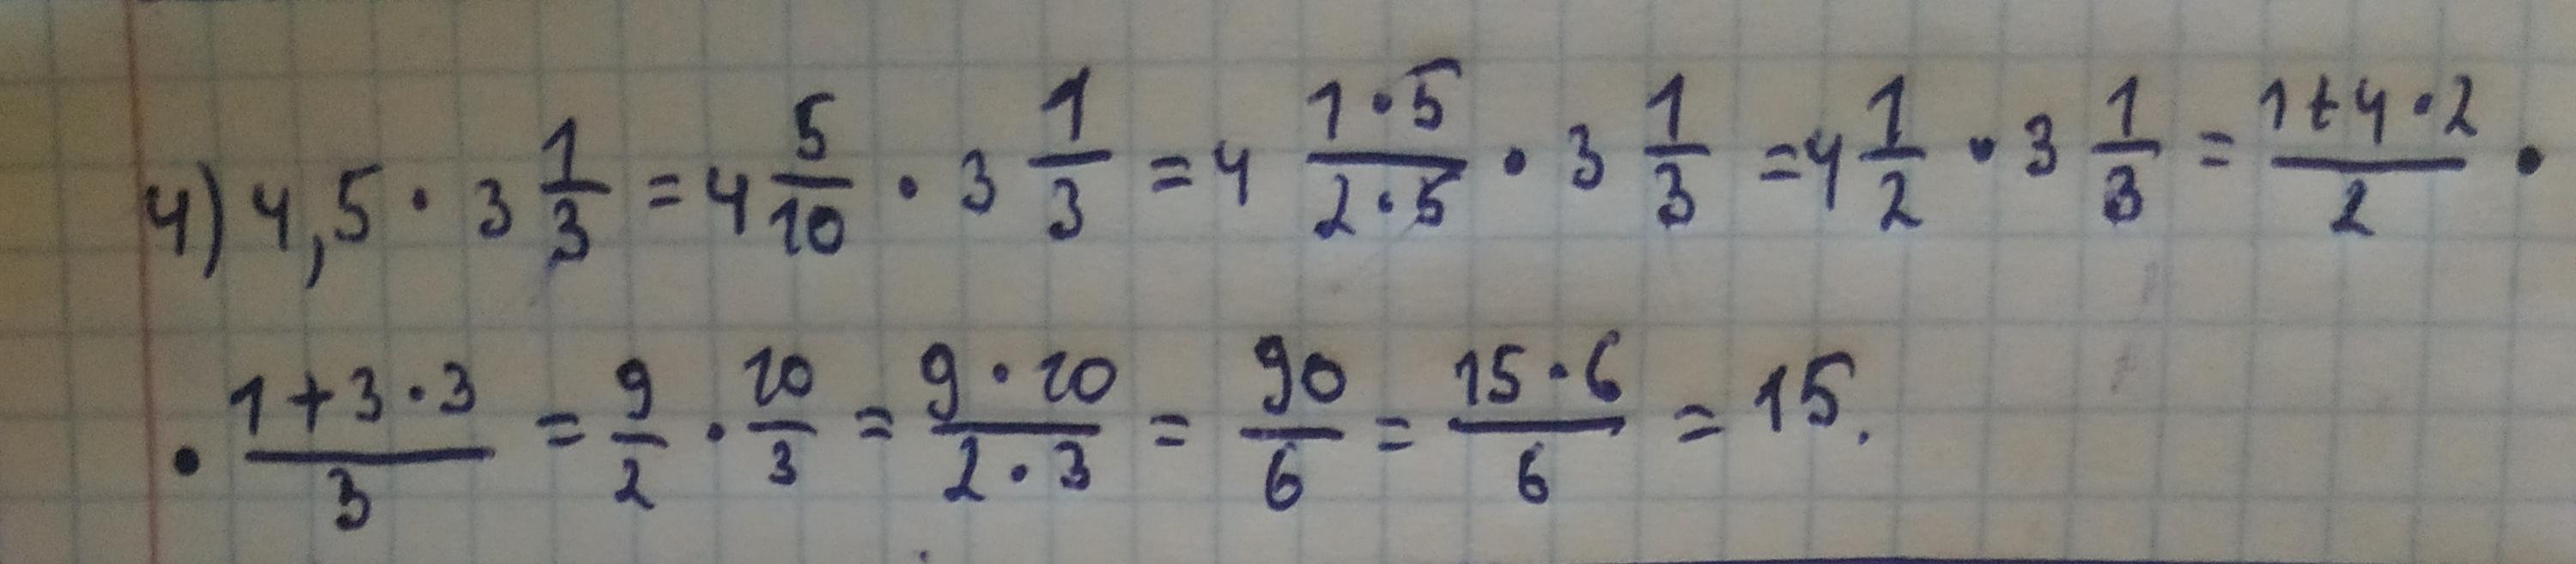 4) 4,5 · 3 1/3 = 4 5/10 · 3 1/3 = 4 (1·5)/(2·5) · 3 1/3 = 4 1/2 · 3 1/3 = (1+4·2)/2 ·
· (1+3·3)/3 = 9/2 · 10/3 = (9·10)/(2·3) = 90/6 = (15·6)/6 = 15.